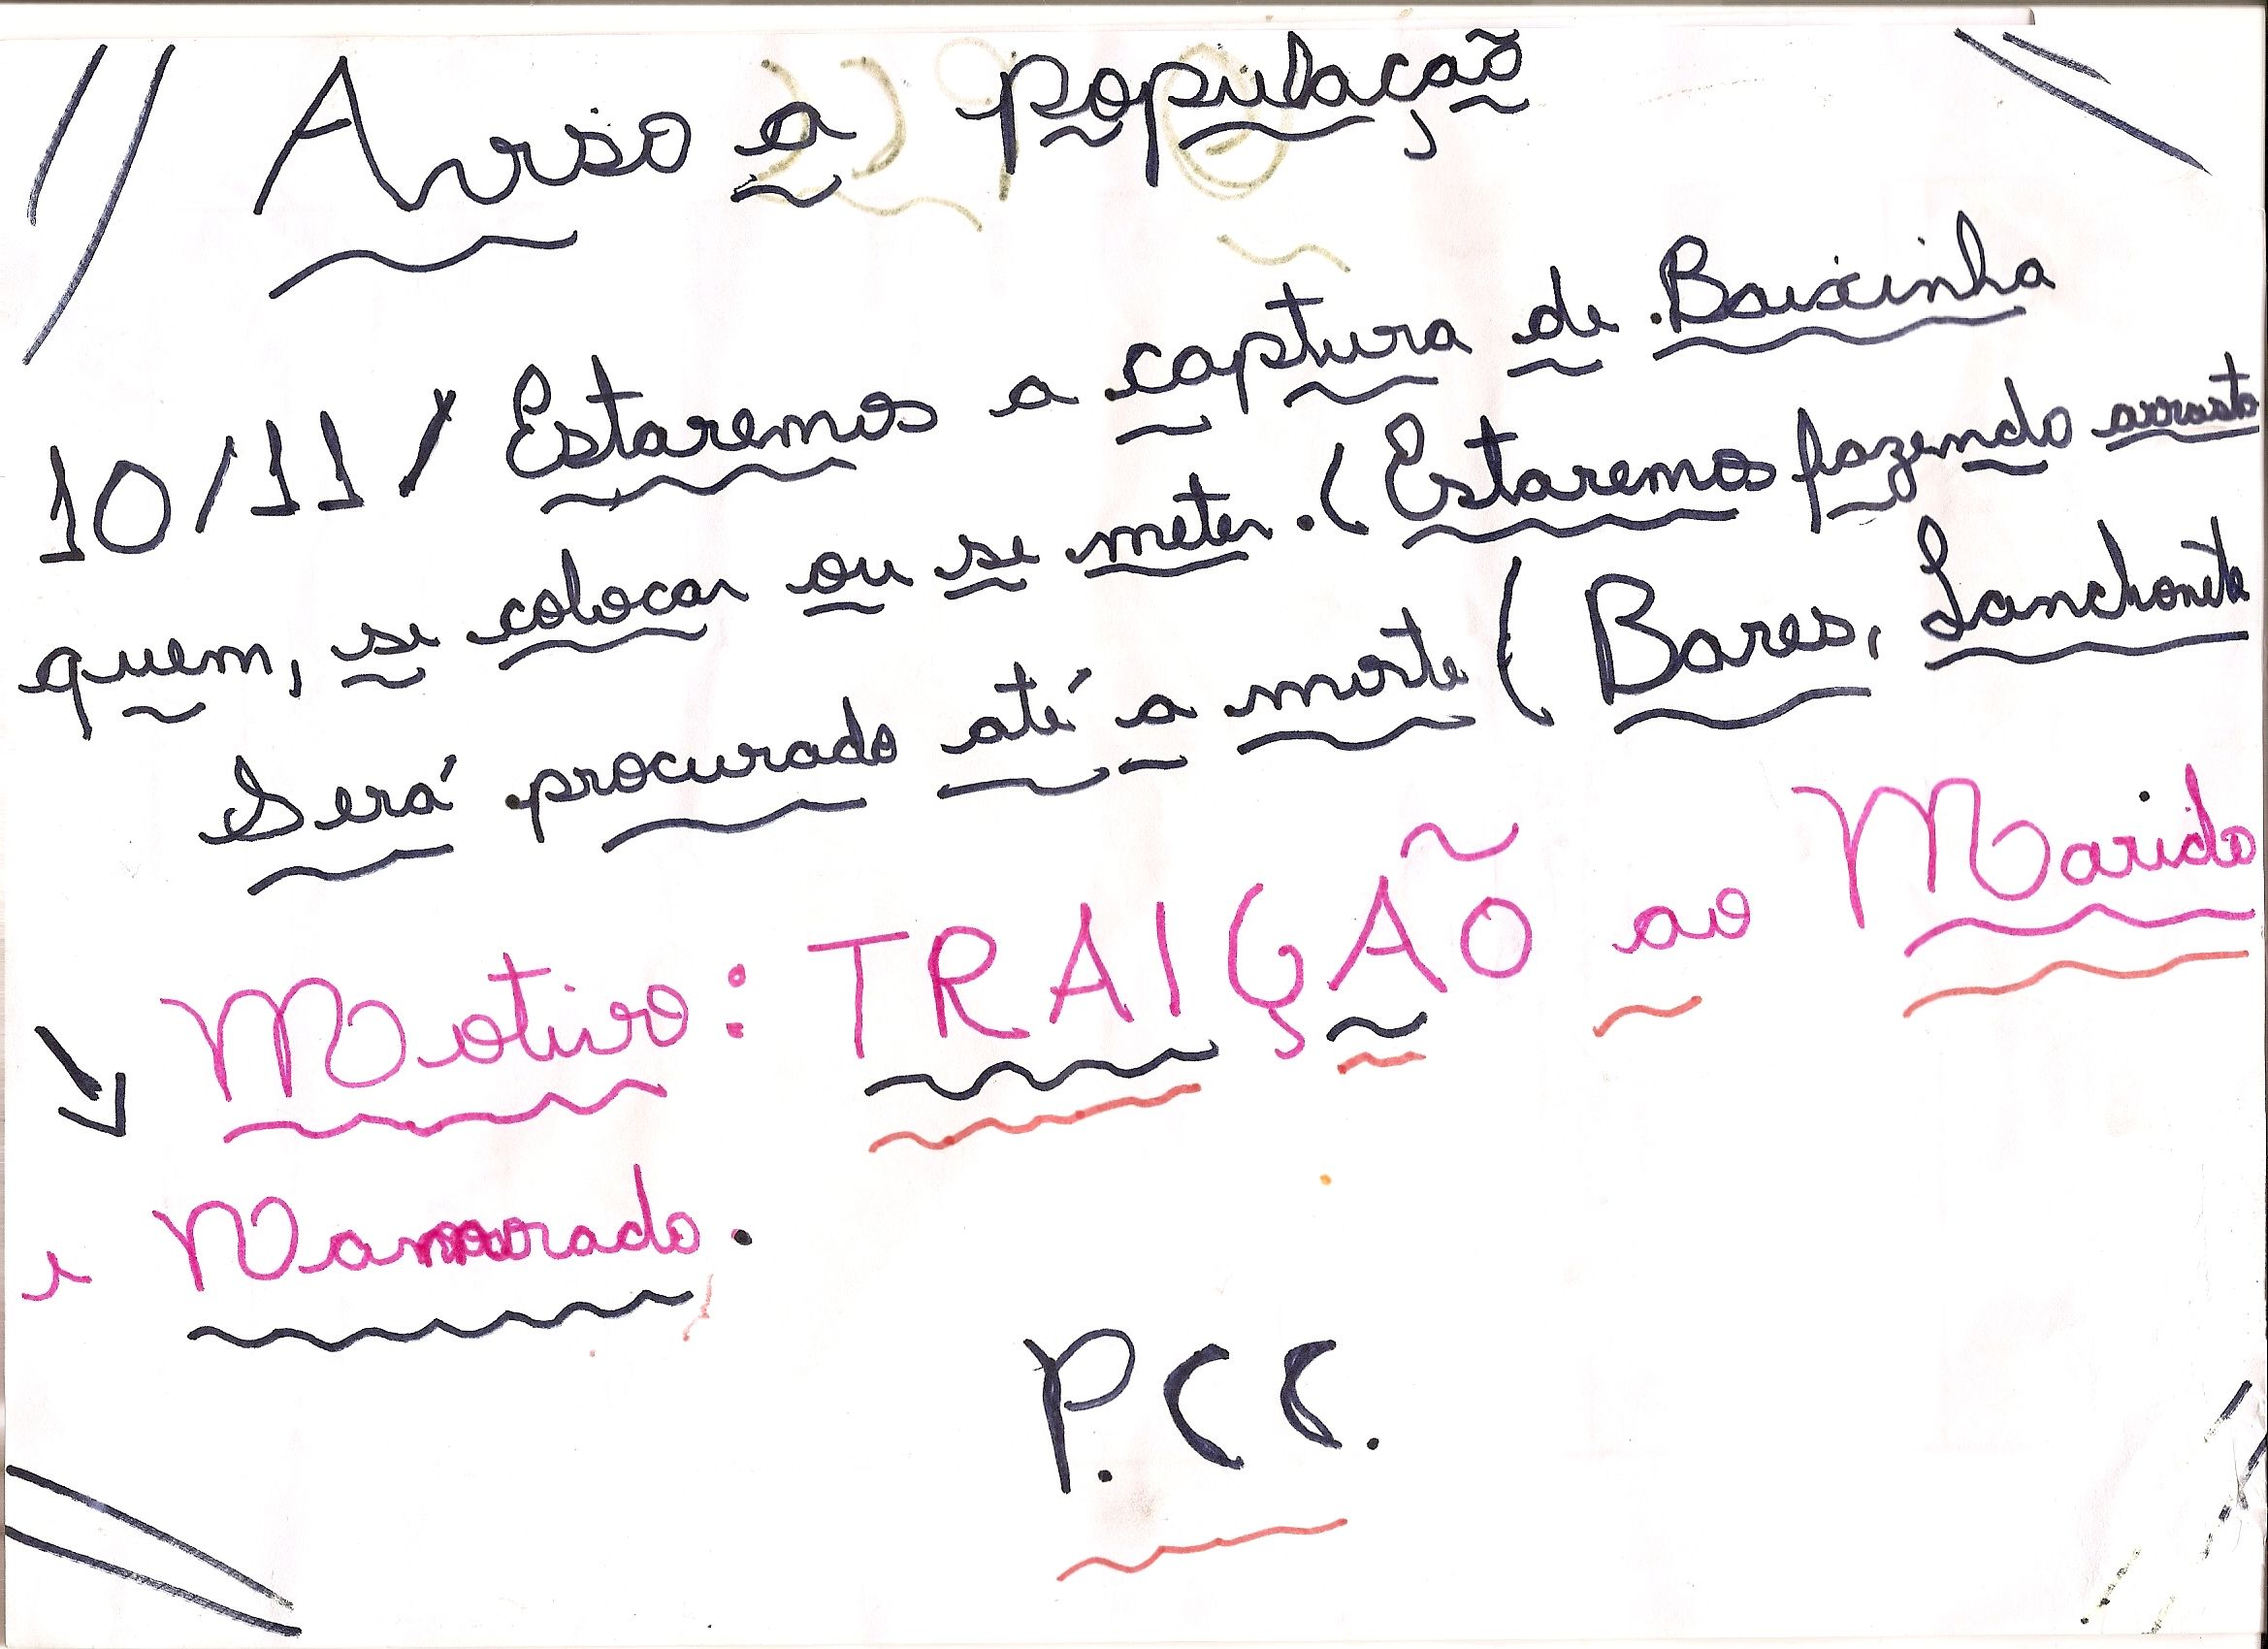 Aviso a População
10/11/ Estaremos a captura de Baixinha
quem, se colocar ou se meter. (Estaremos fazendo arrasto
Será procurado até a morte (Bares, Lanchonete
Motivo: TRAIÇÃO ao Marido
e Namorado.
P.CC.